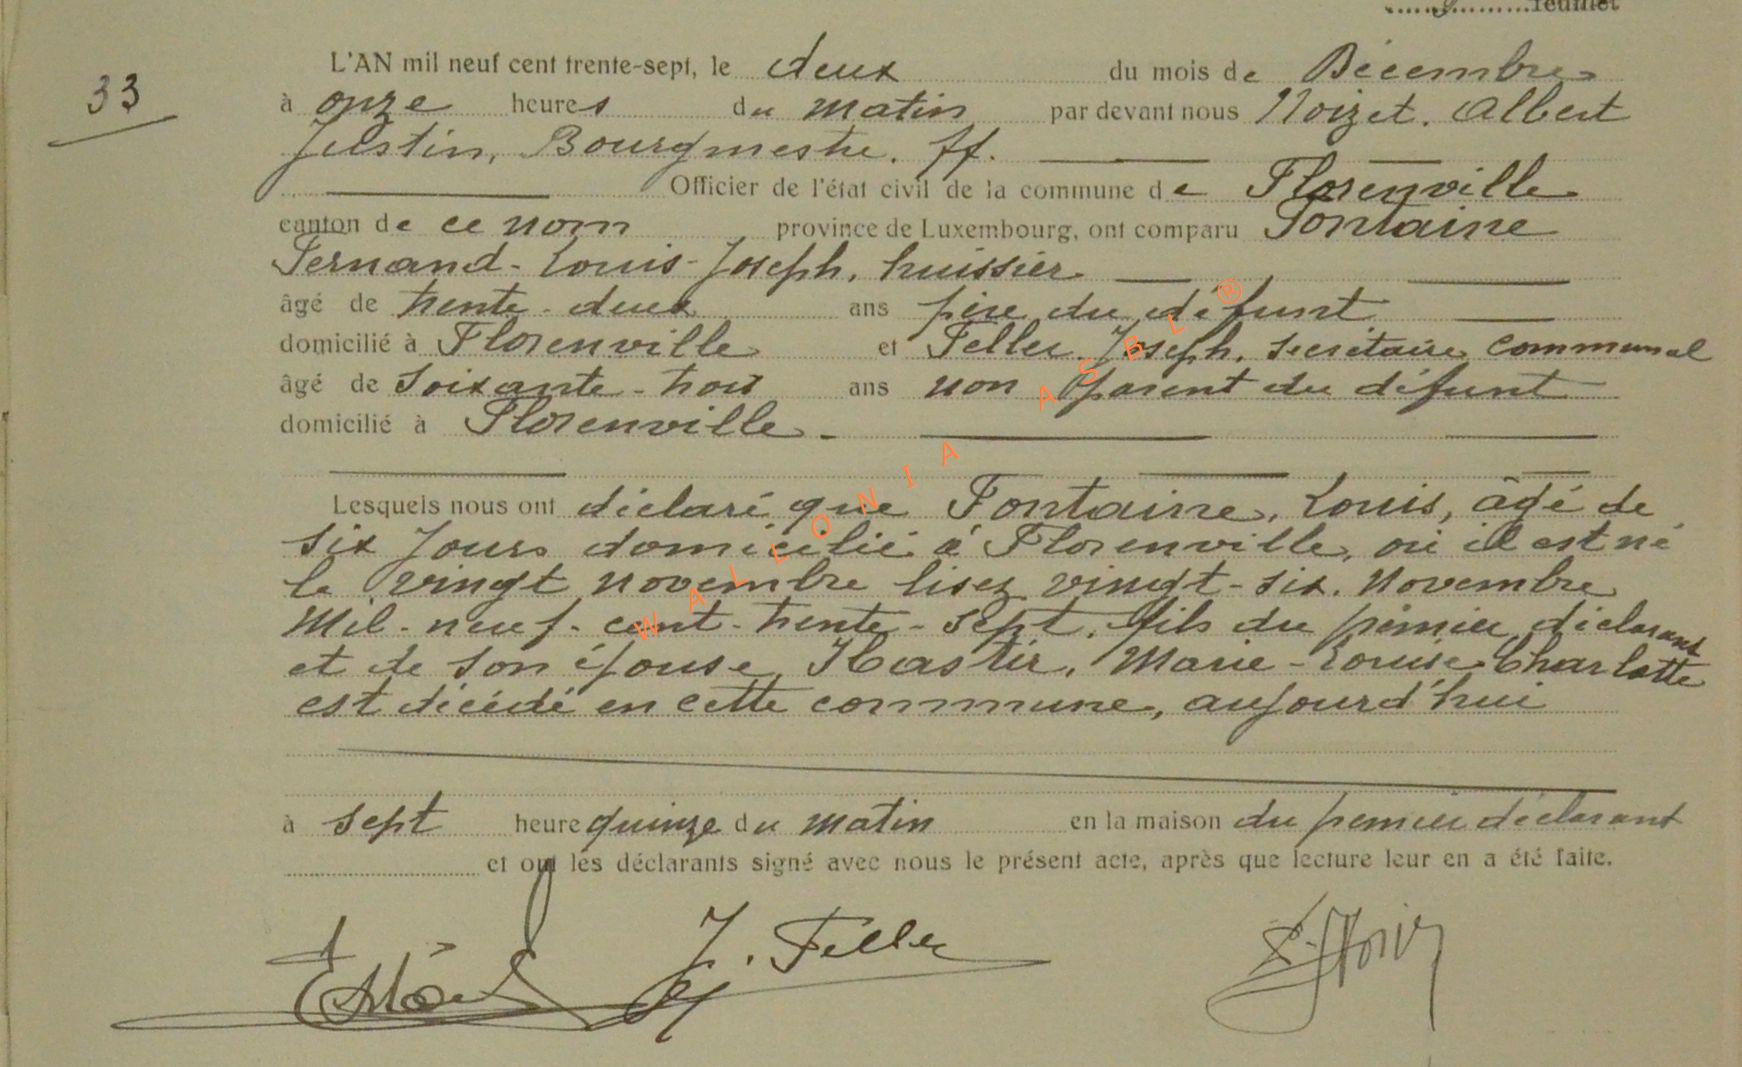 feuillet
33
L'AN mil neuf cent trente-sept, le deux du mois de Décembre
à onze heures du matin par devant nous Noizet. Albert
Justin, Bourgmestre. ff.
Officier de l'état civil de la commune de Florenville
canton de ce nom province de Luxembourg, ont comparu Fontaine
Fernand-Louis-Joseph, huissier
âgé de trente-deux ans père du défunt
domicilié à Florenville et Feller Joseph, secrétaire communal
âgé de soixante-trois ans non parent du défunt
domicilié à Florenville.
Lesquels nous ont déclaré que Fontaine, Louis, âgé de
six jours domicilié à Florenville, où il est né
le vingt novembre lisez vingt-six. Novembre
Mil-neuf-cent-trente-sept, fils du premier déclarant
et de son épouse, Hastir, Marie-Louise-Charlotte
est décédé en cette commune, aujourd'hui
à sept heure quinze du matin en la maison du premier déclarant
et ont les déclarants signé avec nous le présent acte, après que lecture leur en a été faite.
J. Feller
WALLONIA ASBL ®